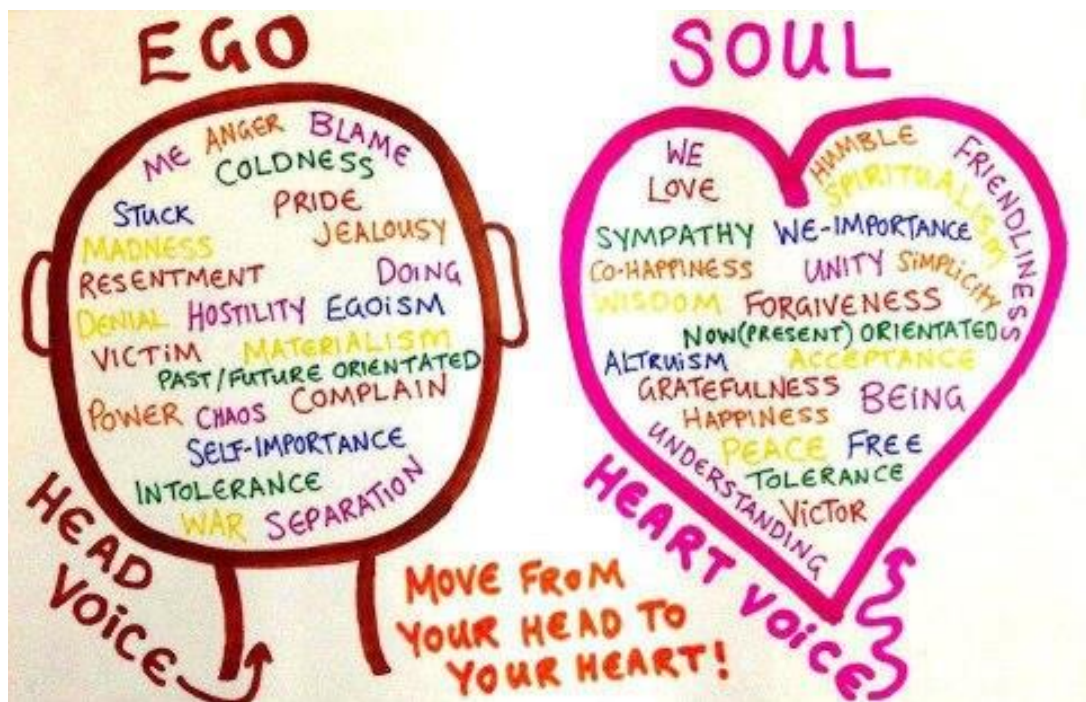 EGO
ME ANGER BLAME
COLDNESS
STUCK PRIDE
MADNESS JEALOUSY
RESENTMENT DOING
DENIAL HOSTILITY EGOiSM
VICTiM MATERIALISM
PAST/FUTURE ORIENTATED
POWER CHAOS COMPLAIN
SELF-IMPORTANCE
INTOLERANCE
WAR SEPARATION
HEAD
VOiCE
MOVE FROM
YOUR HEAD TO
YOUR HEART!
SOUL
WE HUMBLE FRIENDLINESS
LOVE SPIRITUALISM
SYMPATHY WE-IMPORTANCE
CO-HAPPINESS UNITY SiMPLICITY
WISDOM FORGIVENESS
NOW(PRESENT) ORIENTATED
ALTRUiSM ACCEPTANCE
GRATEFULNESS BEING
HAPPINESS
PEACE FREE
UNDERSTANDING TOLERANCE
ViCTOR
HEART VOiCE